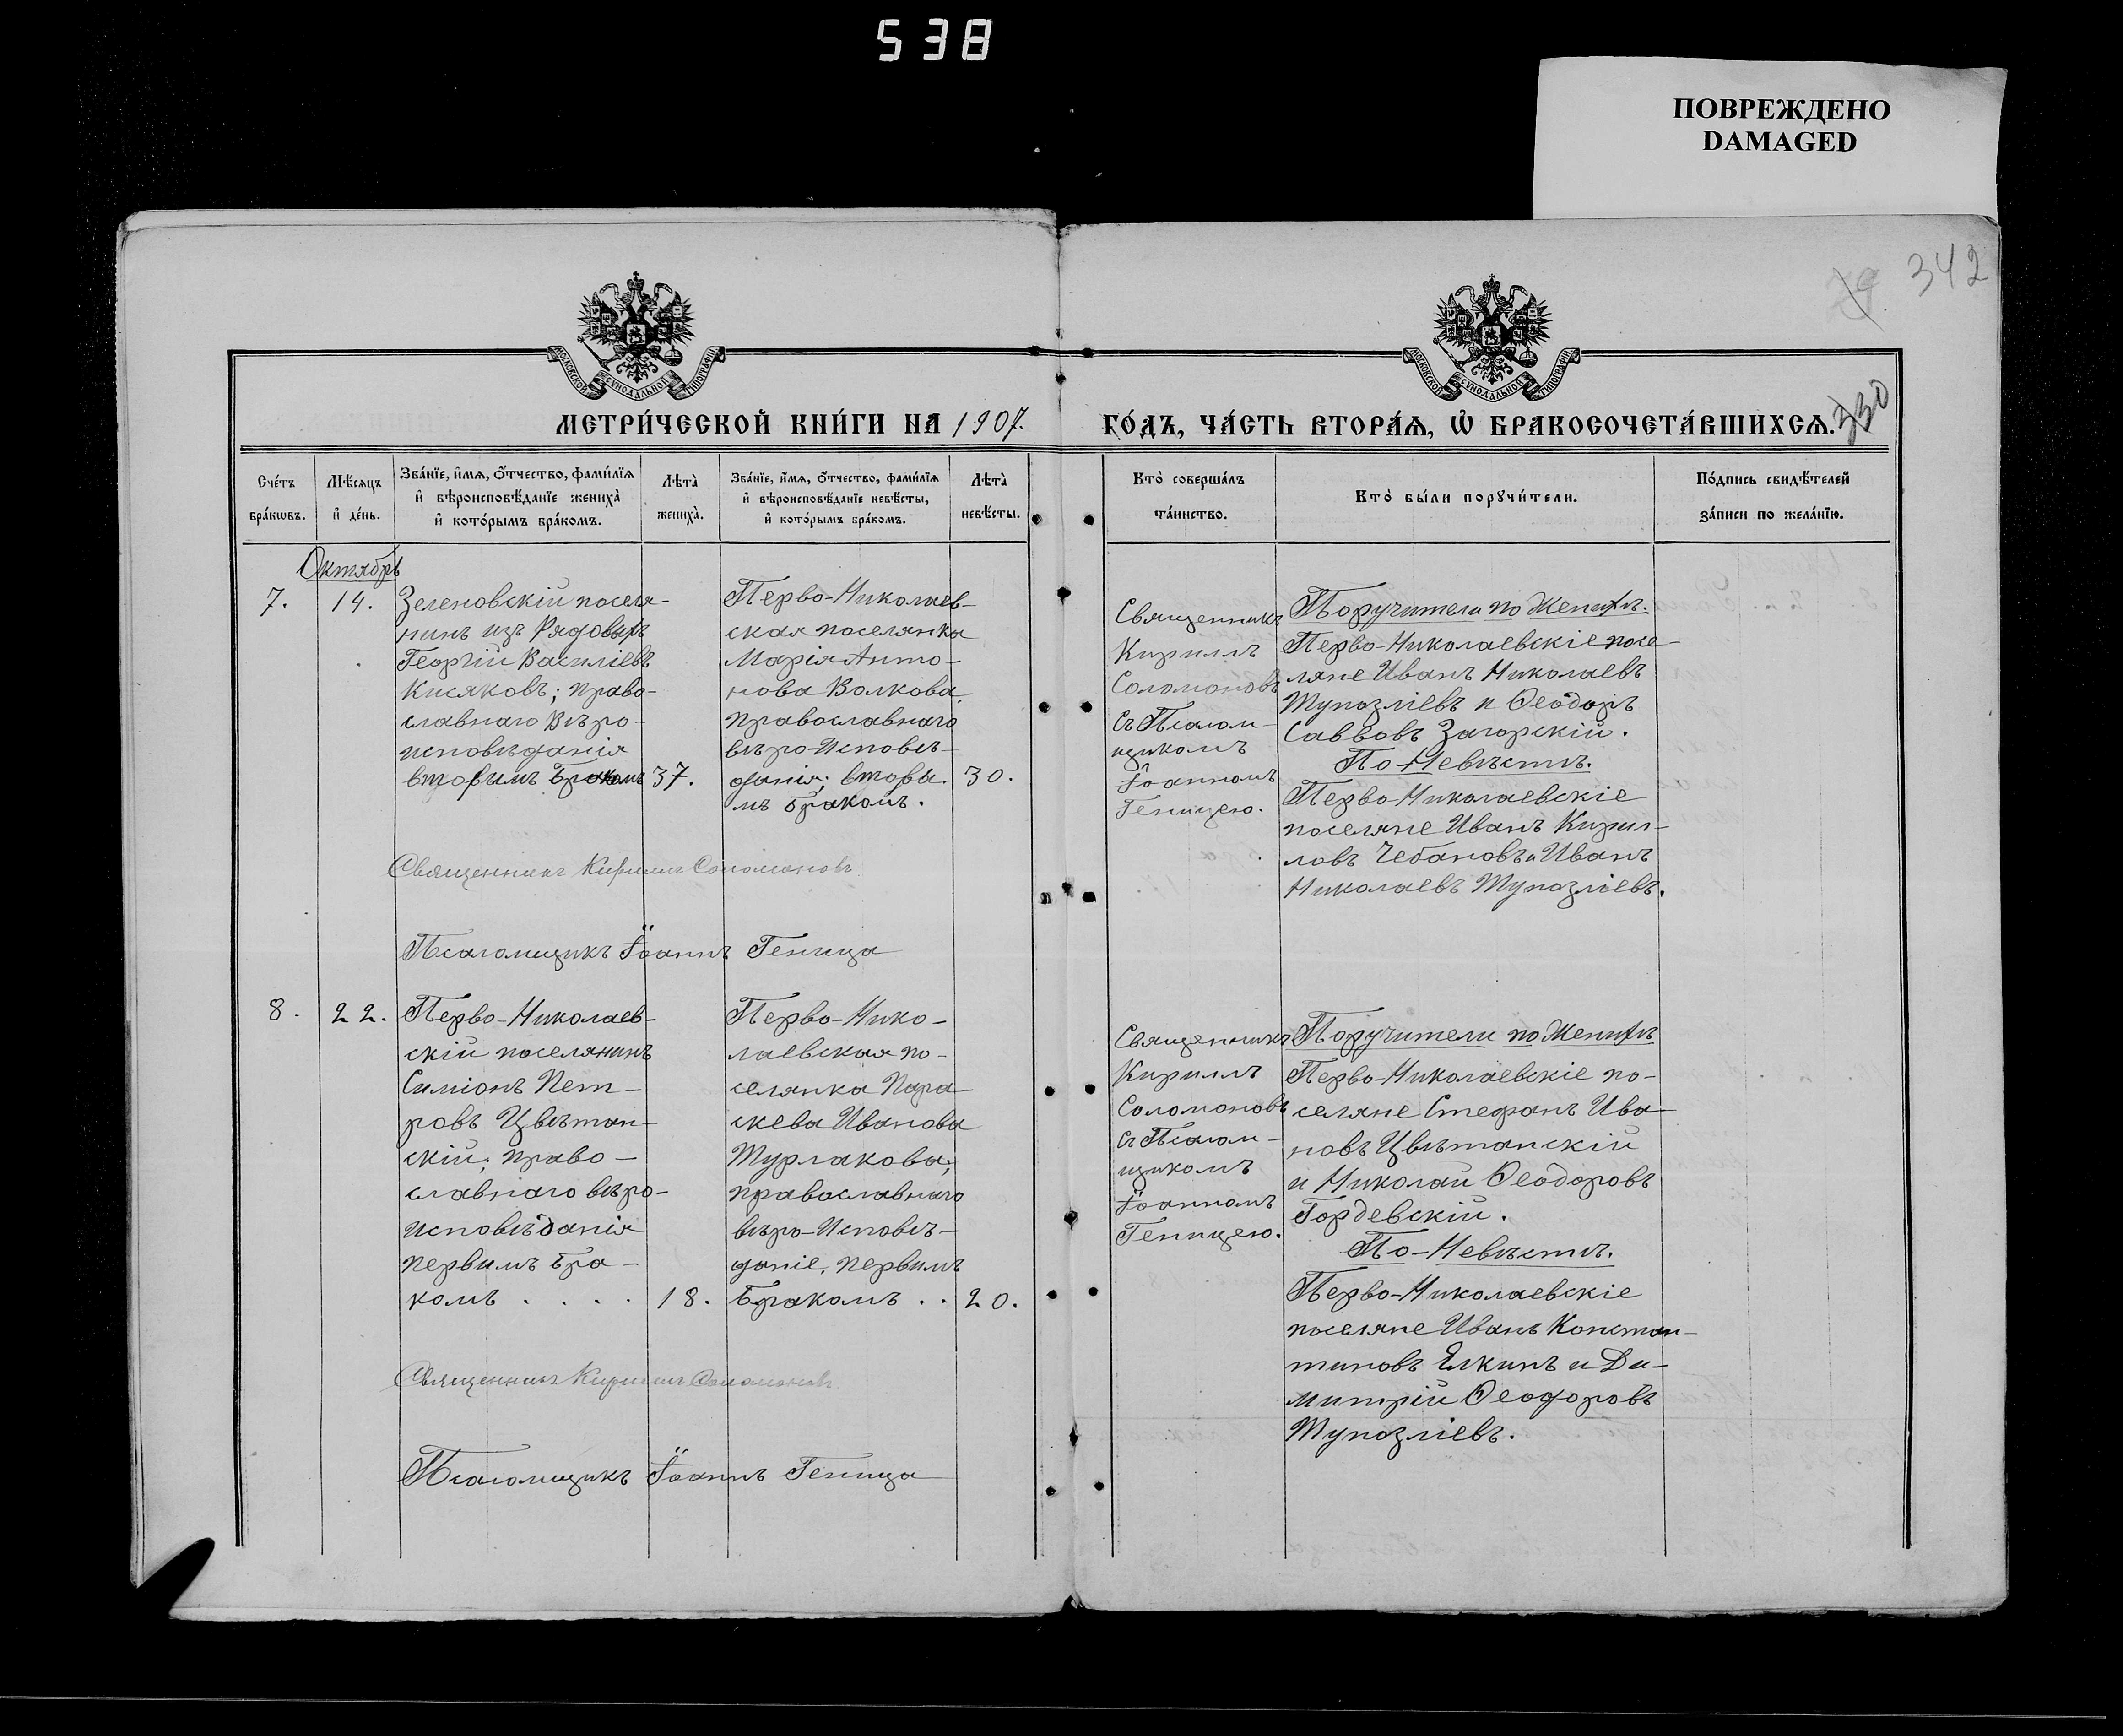 538
ПОВРЕЖДЕНО
DAMAGED
342
МОСКОВСКОЙ СѴНОДАЛЬНОЙ ТИПОГРАФІИ
МОСКОВСКОЙ СѴНОДАЛЬНОЙ ТИПОГРАФІИ
МЕТРИ́ЧЕСКОЙ КНИ́ГИ НА 1907.
ГО́ДЪ, ЧА́СТЬ ВТОРА́Ѧ, Ѡ҆ БРАКОСОЧЕТА́ВШИХСѦ.
330
Сче́тъ
бра́кѡвъ.
Мѣ́сяцъ
и҆ де́нь.
Зва́нїе, и҆́мѧ, ѻ҆́тчество, фами́лїѧ
и҆ вѣроисповѣ́данїе жениха̀
и҆ кото́рымъ бра́комъ.
Лѣта̀
жениха̀.
Зва́нїе, и҆́мѧ, ѻ҆́тчество, фами́лїѧ
и҆ вѣроисповѣ́данїе невѣ́сты,
и҆ кото́рымъ бра́комъ.
Лѣта̀
невѣ́сты.
Кто̀ соверша́лъ
та́инство.
Кто̀ бы́ли порꙋчи́тели.
По́дпись свидѣ́телей
за́писи по жела́нїю.
Октябрь
7.
14.
Зеленовскій поселя-
нинъ изъ Рядовыхъ
Георгій Василіевъ
Кисяковъ; право-
славнаго Вѣро-
исповѣданія
вторымъ Бракомъ
37.
Перво-Николаев-
ская поселянка
Марія Анто-
нова Волкова
православнаго
вѣро-Исповѣ-
данія; вторы.
мъ бракомъ.
30.
Священникъ
Кириллъ
Соломоновъ
съ Псалом-
щикомъ
Іоанномъ
Геницею.
Поручители по Женихѣ:
Перво-Николаевскіе посе-
ляне Иванъ Николаевъ
Тупозліевъ и Ѳеодоръ
Саввовъ Загорскій.
По-Невѣстѣ.
Перво-Николаевскіе
поселяне Иванъ Кирил-
ловъ Чебановъ и Иванъ
Николаевъ Тупозліевъ.
Священникъ Кириллъ Соломоновъ
Псаломщикъ Іоаннъ Геница
8.
22.
Перво-Николаев-
скій поселянинъ
Симіонъ Пет-
ровъ Цвѣтан-
скій; право-
славнаго вѣро-
исповѣданія
первимъ Бра-
комъ . . . .
18.
Перво-Нико-
лаевская по-
селянка Пара-
скева Иванова
Турлакова;
православнаго
вѣро-Исповѣ-
даніе, первимъ
Бракомъ . .
20.
Священникъ
Кириллъ
Соломоновъ
съ Псалом-
щикомъ
Іоанномъ
Геницею.
Поручители по Женихѣ
Перво-Николаевскіе по-
селяне Стефанъ Ива-
новъ Цвѣтанскій
и Николай Ѳеодоровъ
Гордевскій.
По-Невѣстѣ.
Перво-Николаевскіе
поселяне Иванъ Констан-
тиновъ Елкинъ и Ди-
митрій Ѳеодоровъ
Тупозліевъ.
Священникъ Кириллъ Соломоновъ
Псаломщикъ Іоаннъ Геница